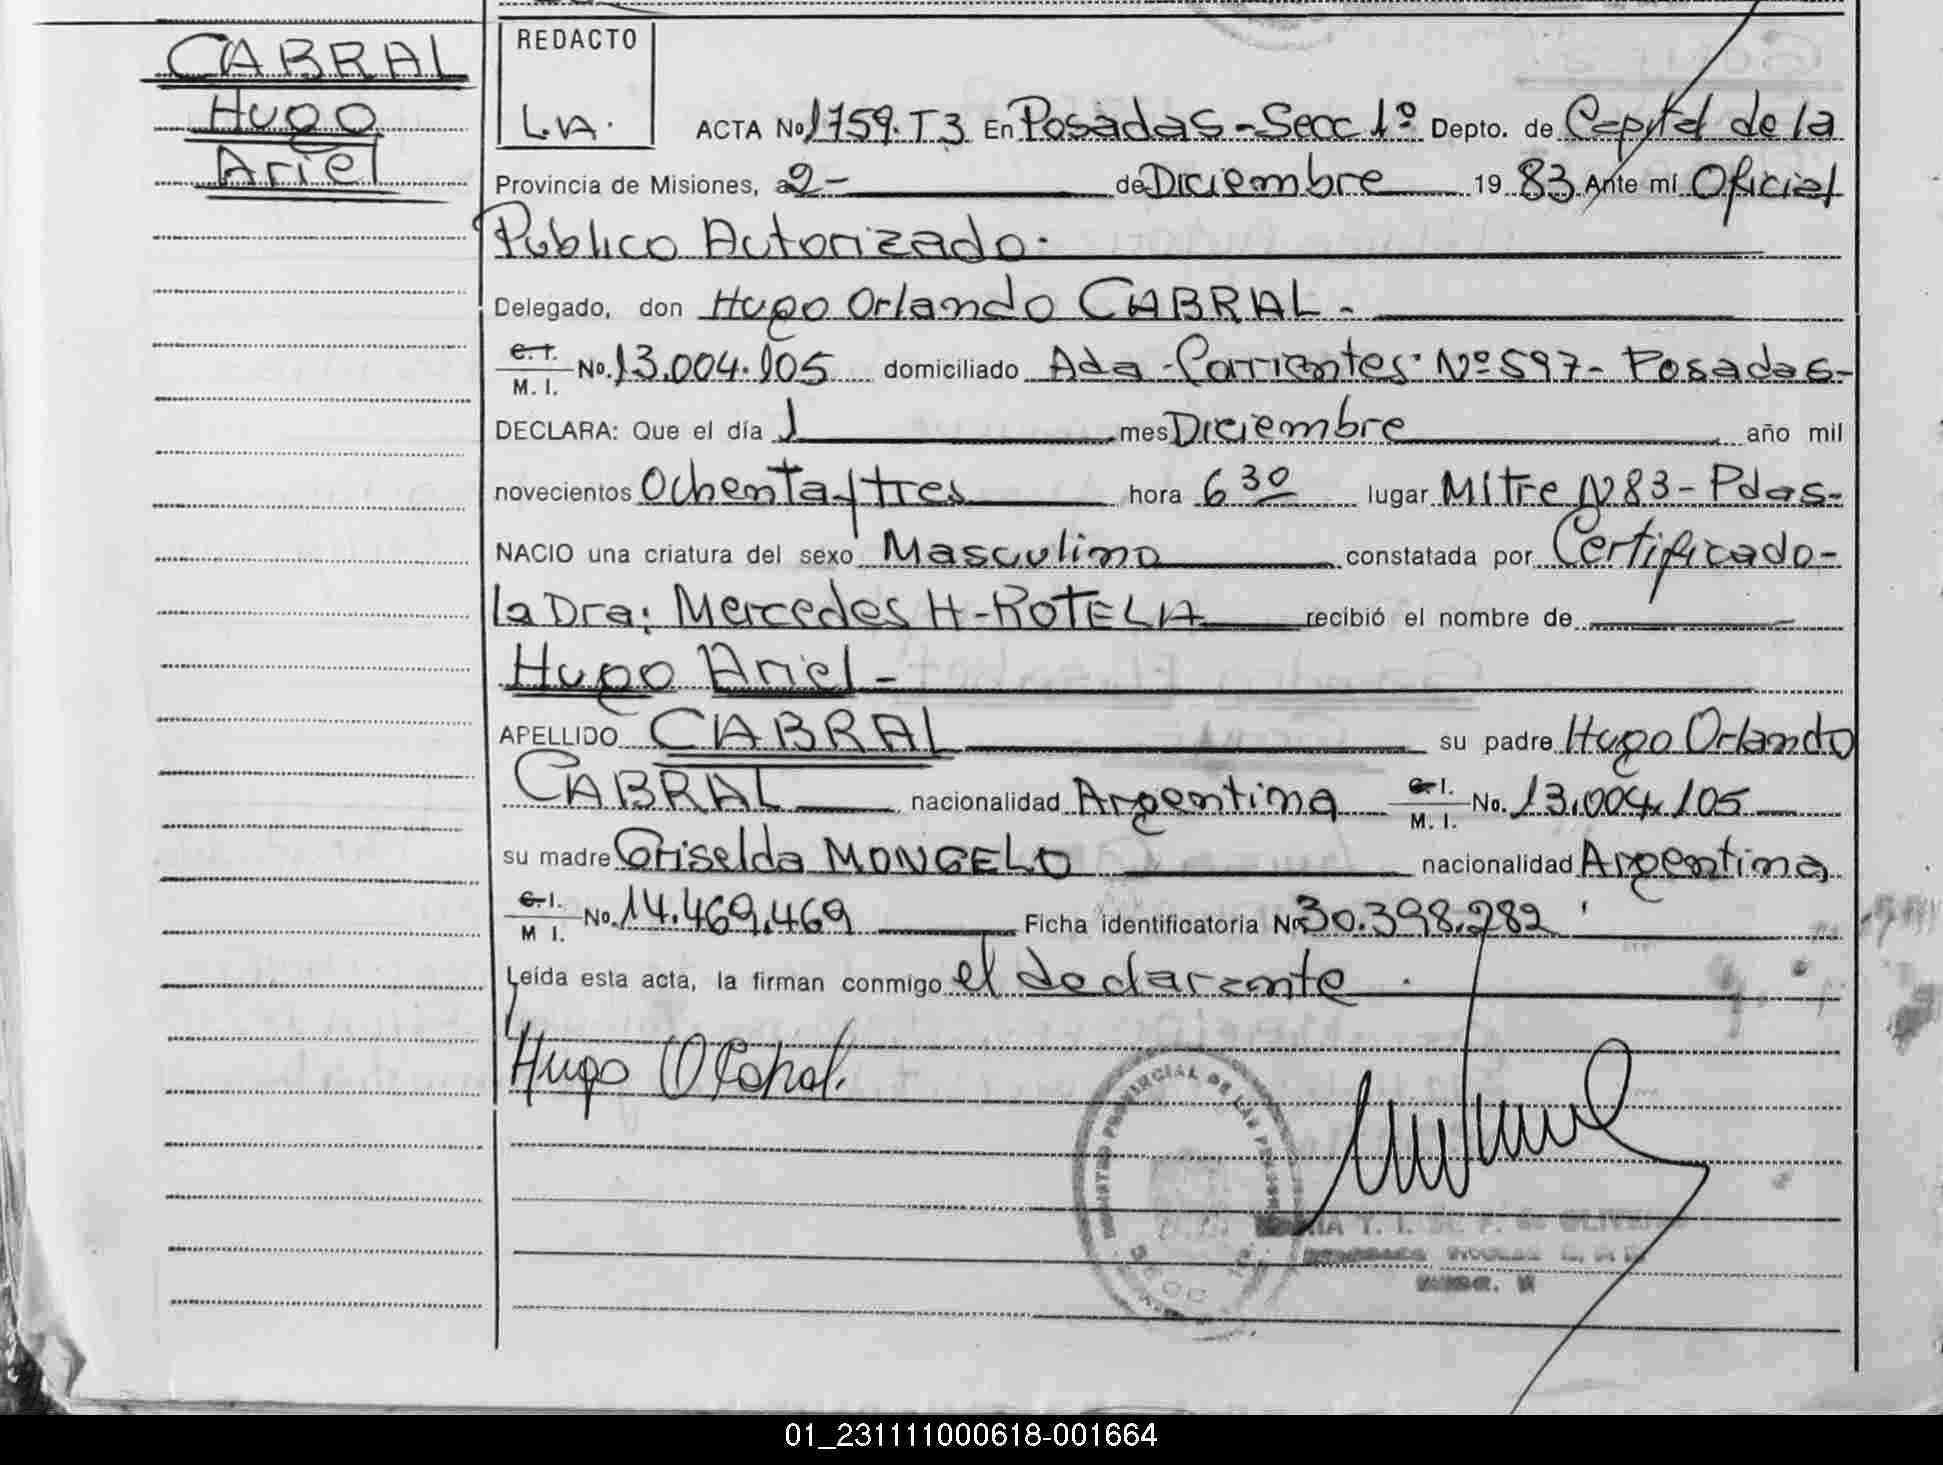 CABRAL
Hugo
Ariel
REDACTO
L.A.
ACTA No 1759.T3 En Posadas-Secc 1º Depto. de Capital de la
Provincia de Misiones, a 2- de Diciembre 19 83 Ante mi Oficial
Público Autorizado.
Delegado, don Hugo Orlando CABRAL -
C.I. M. I. No. 13.004.105 domiciliado Ada-Corrientes Nº 597- Posadas-
DECLARA: Que el día 1 mes Diciembre año mil
novecientos Ochenta y tres hora 6 30 lugar Mitre Nº 83- Pdas-
NACIO una criatura del sexo Masculino constatada por Certificado-
la Dra: Mercedes H-ROTELA recibió el nombre de
Hugo Ariel -
APELLIDO CABRAL su padre Hugo Orlando
CABRAL nacionalidad Argentina C.I. M. I. No. 13.004.105
su madre Griselda MONGELO nacionalidad Argentina
C.I. M I. No. 14.469.469 Ficha identificatoria No 30.398.282
Leída esta acta, la firman conmigo el declarante .
Hugo O Cabral.
REGISTRO PROVINCIAL DE LAS PERSONAS
01_231111000618-001664